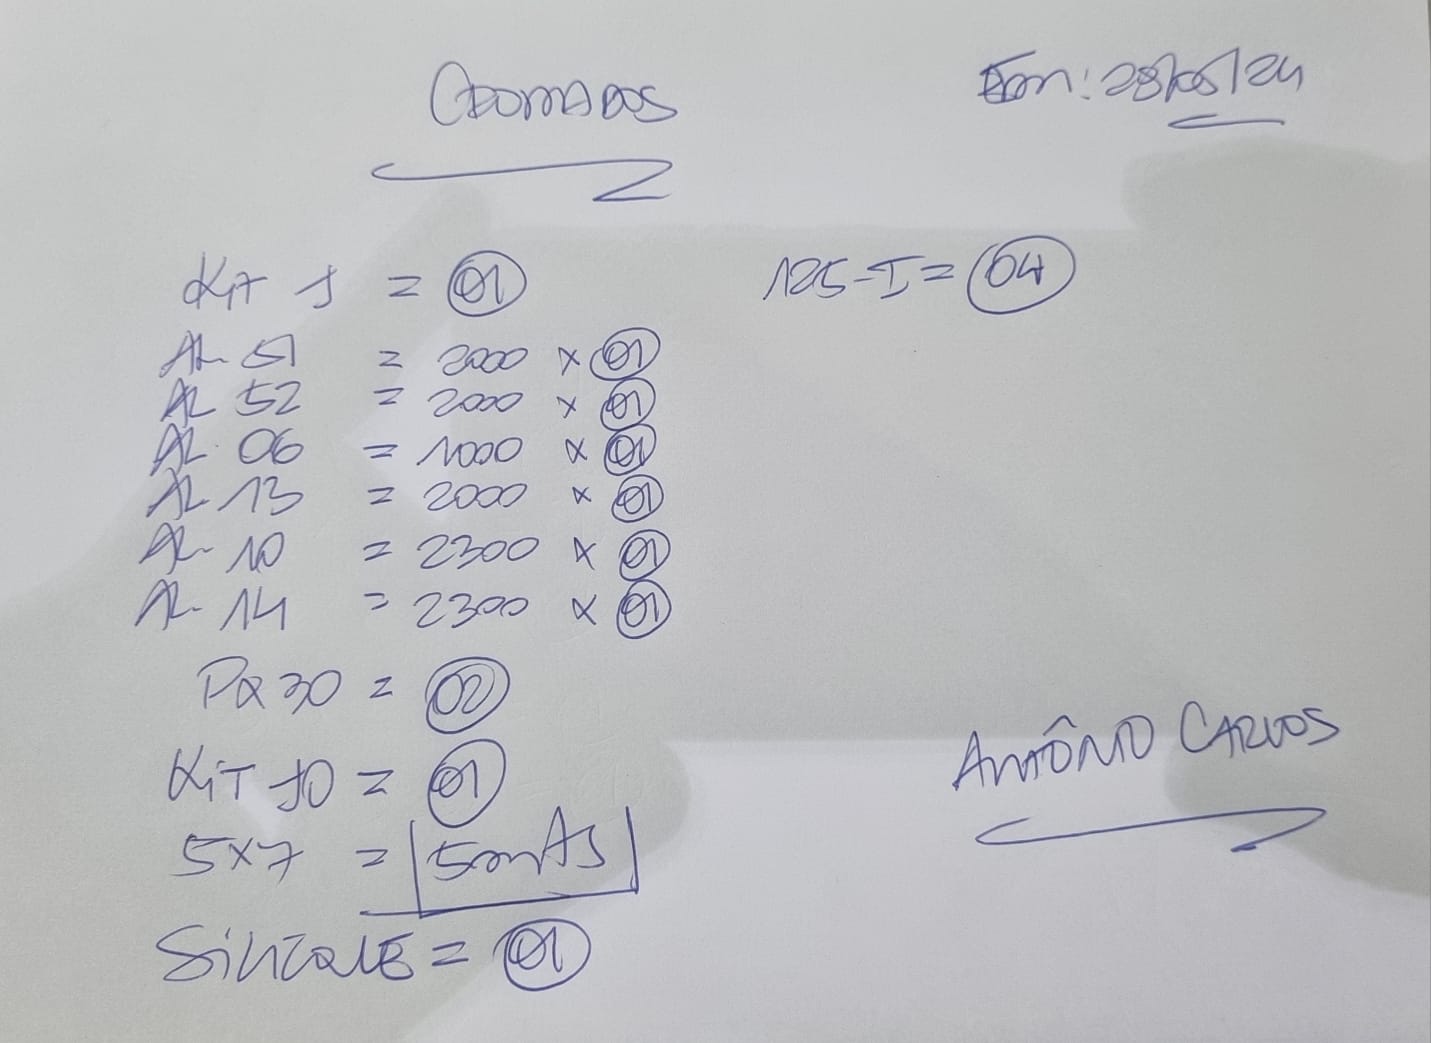 CROMADOS
Em: 28/05/24
Kit 1 = 01
125-I = 04
AL 51 = 2000 x 01
AL 52 = 2000 x 01
AL 06 = 1000 x 01
AL 13 = 2000 x 01
AL- 10 = 2300 x 01
AL- 14 = 2300 x 01
PQ 30 = 02
KiT 10 = 01
5x7 = 5mts
SiLICONE = 01
ANTÔNIO CARLOS